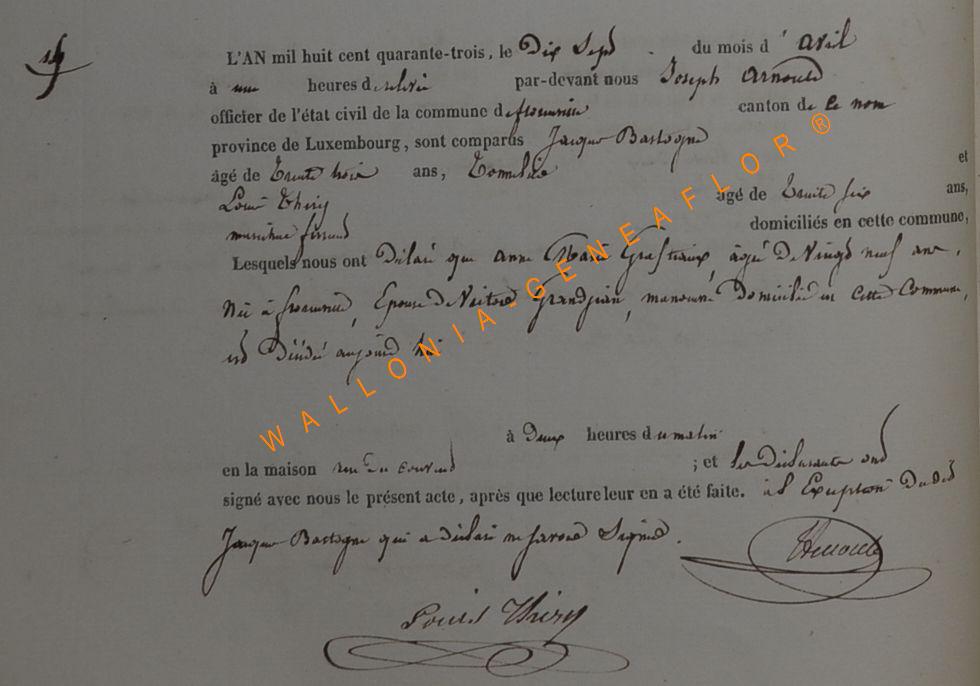 L'AN mil huit cent quarante-trois, le Dix Sept du mois d' avril
à une heures de relevée par-devant nous Joseph Arnould
officier de l'état civil de la commune de canton de ce nom
province de Luxembourg, sont comparus Jacque Bastogne
âgé de Trente trois ans, et
Louis Thiry âgé de Trente six ans,
domiciliés en cette commune,
Lesquels nous ont Déclaré que anne Marie agée de Vingt neuf ans,
Née à Epouse de Grandjean, Domicilié en Cette Commune,
est Décédé aujourd'hui
à Deux heures du matin
en la maison rue du ; et les Déclarants ont
signé avec nous le présent acte, après que lecture leur en a été faite. à l'Exception Dudit
Jacque Bastogne qui a déclaré ne savoir Signer.
Arnould
Louis Thiry
WALLONIA-GENEAFLOR ®